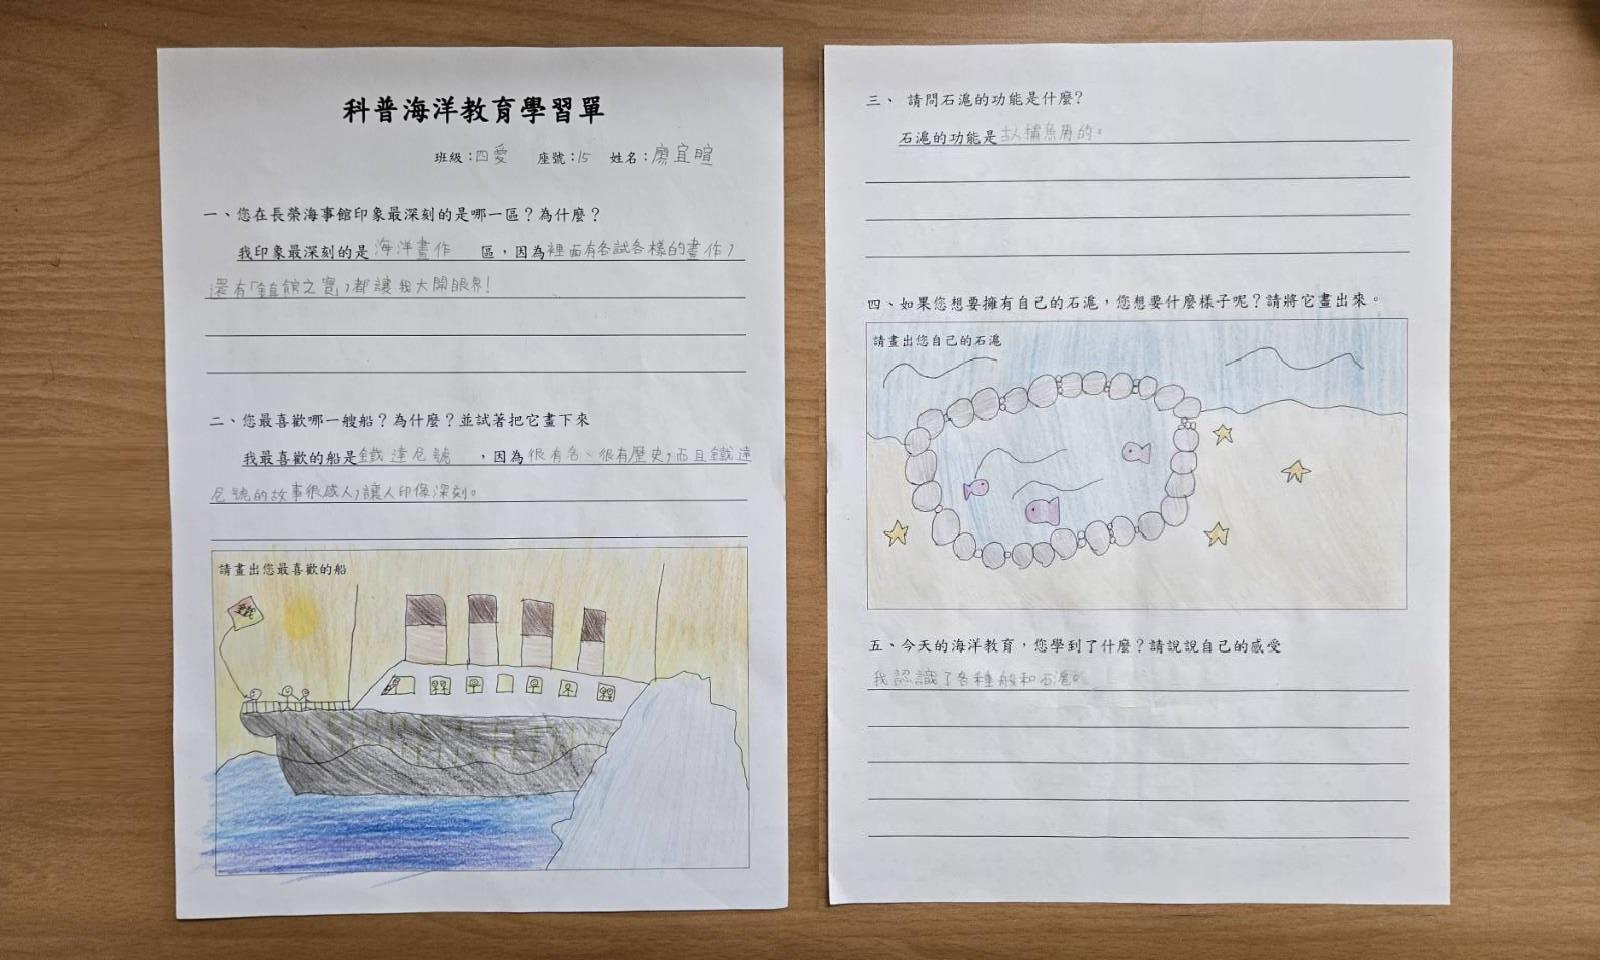 科普海洋教育學習單
班級：四愛 座號：15 姓名：廖宜暄
一、您在長榮海事館印象最深刻的是哪一區？為什麼？
我印象最深刻的是海洋畫作 區，因為裡面有各試各樣的畫作，
還有「鎮館之寶」，都讓我大開眼界！
二、您最喜歡哪一艘船？為什麼？並試著把它畫下來
我最喜歡的船是鐵達尼號 ，因為很有名、很有歷史，而且鐵達
尼號的故事很感人，讓人印像深刻。
請畫出您最喜歡的船
三、 請問石滬的功能是什麼？
石滬的功能是古人捕魚用的。
四、如果您想要擁有自己的石滬，您想要什麼樣子呢？請將它畫出來。
請畫出您自己的石滬
五、今天的海洋教育，您學到了什麼？請說說自己的感受
我認識了各種船和石滬。